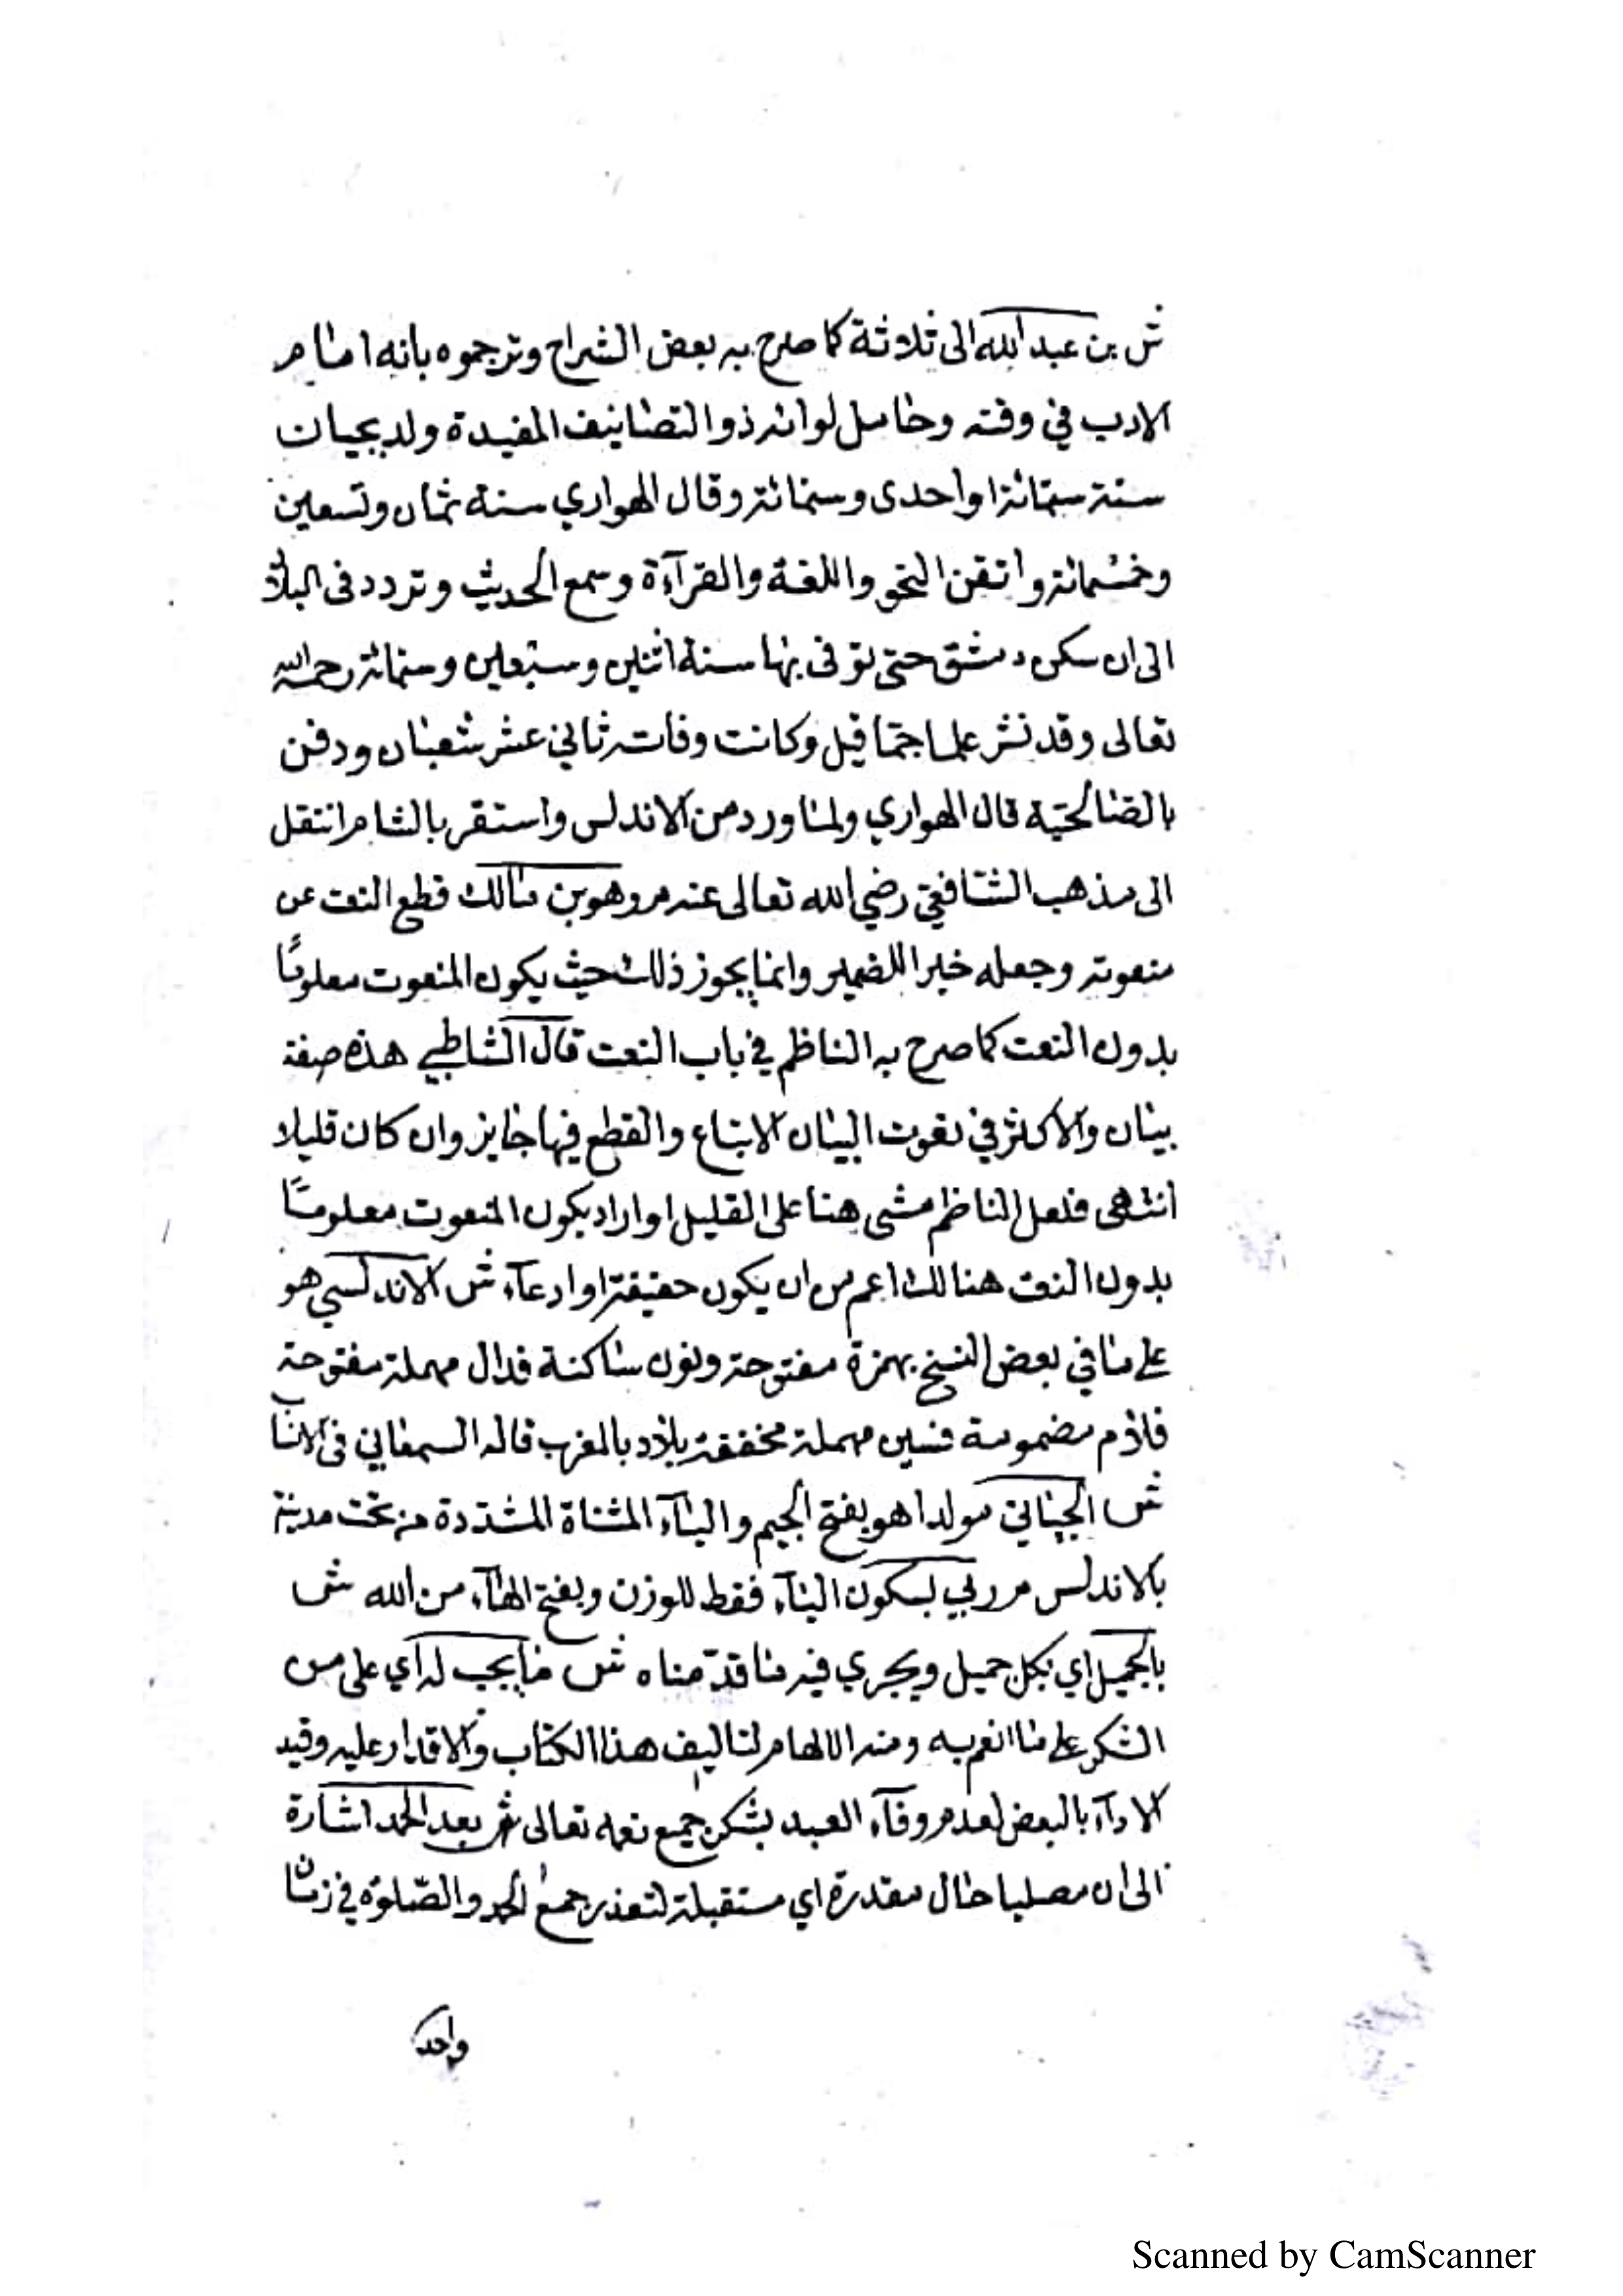 ش بن عبد الله الى ثلاثة كما صرح به بعض الشراح وترجموه بانه امام
الادب في وقته وحامل لوائه ذو التصانيف المفيدة ولد بجيان
سنة ستمائة او احدى وستمائة وقال الهواري سنة ثمان وتسعين
وخمسمائة واتقن النحو واللغة والقرآءة وسمع الحديث وتردد فى البلاد
الى ان سكن دمشق حتى توفى بها سنة اثنين وسبعين وستمائة رحمه الله
تعالى وقد نشر علما جما قيل وكانت وفاته ثاني عشر شعبان ودفن
بالصالحية قال الهواري ولما ورد من الاندلس واستقر بالشام انتقل
الى مذهب الشافعي رضي الله تعالى عنه م وهو بن مالك قطع النعت عن
منعوته وجعله خبرا للضمير وانما يجوز ذلك حيث يكون المنعوت معلومًا
بدون النعت كما صرح به الناظم في باب النعت قال الشاطبي هذه صفة
بيان والاكثر في نعوت البيان الاتباع والقطع فيها جايز وان كان قليلا
انتهى فلعل الناظم مشى هنا على القليل او اراد بكون المنعوت معلومًا
بدون النعت هنالك اعم من ان يكون حقيقة او ادعآء ش الاندلسي هو
على ما في بعض النسخ بهمزة مفتوحة ونون ساكنة فدال مهملة مفتوحة
فلام مضمومة فسين مهملة مخففة بلاد بالمغرب قاله السمعاني فى الانساب
ش الجياني مولدا هو بفتح الجيم والياء المثناة المشددة من تحت مدينة
بالاندلس م ربي بسكون اليآء فقط للوزن وبفتح الهآء من الله ش
بالجميل اي بكل جميل ويجري فيه ما قدّمناه ش ما يجب له اي على من
الشكر على ما انعم به ومنه الالهام لتاليف هذا الكتاب والاقدار عليه وقيد
الادآء بالبعض لعدم وفآء العبد بشكر جميع نعمه تعالى ش بعد الحمد اشارة
الى ان مصليا حال مقدرة اي مستقبلة لتعذر جمع الحمد والصلوة في زمان
واحد
Scanned by CamScanner